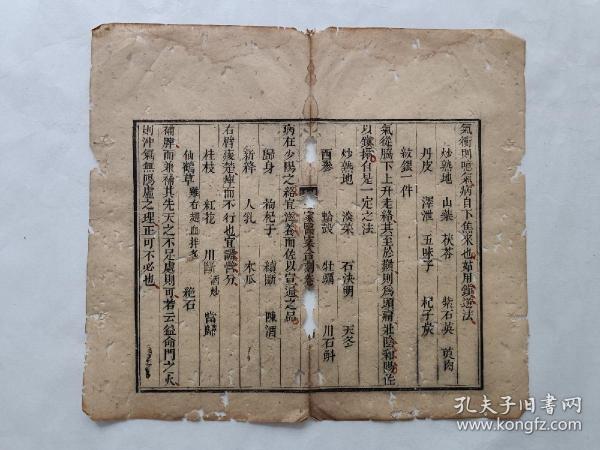 氣衝則呃氣病自下焦來也茹用鎮逆法
炒熟地　山藥　茯苓　紫石英　萸肉
丹皮　澤泄　五味子　杞子炭
紋銀一件
氣從臍下上升走絡甚至於巔則為頭痛壯陰和陽詮
以鎮攝自是一定之法
炒熟地　淡菜　石決明　天冬
西參　蛤殼　牡蠣　川石斛
三家醫案合刻卷
病在少陽之絡宜滋養而佐以宣通之品
歸身　枸杞子　續斷　陳酒
新絳　人乳　木瓜
右臂痠楚痺而不行也宜調營分
桂枝　紅花　川斷酒炒　當歸
仙鶴草　雞右翅血拌炙　絡石
補脾而兼補其先天之不足處則可若云益命門之火
則沖氣無陽虛之理正可不必也
孔夫子旧书网
www.kongfz.com